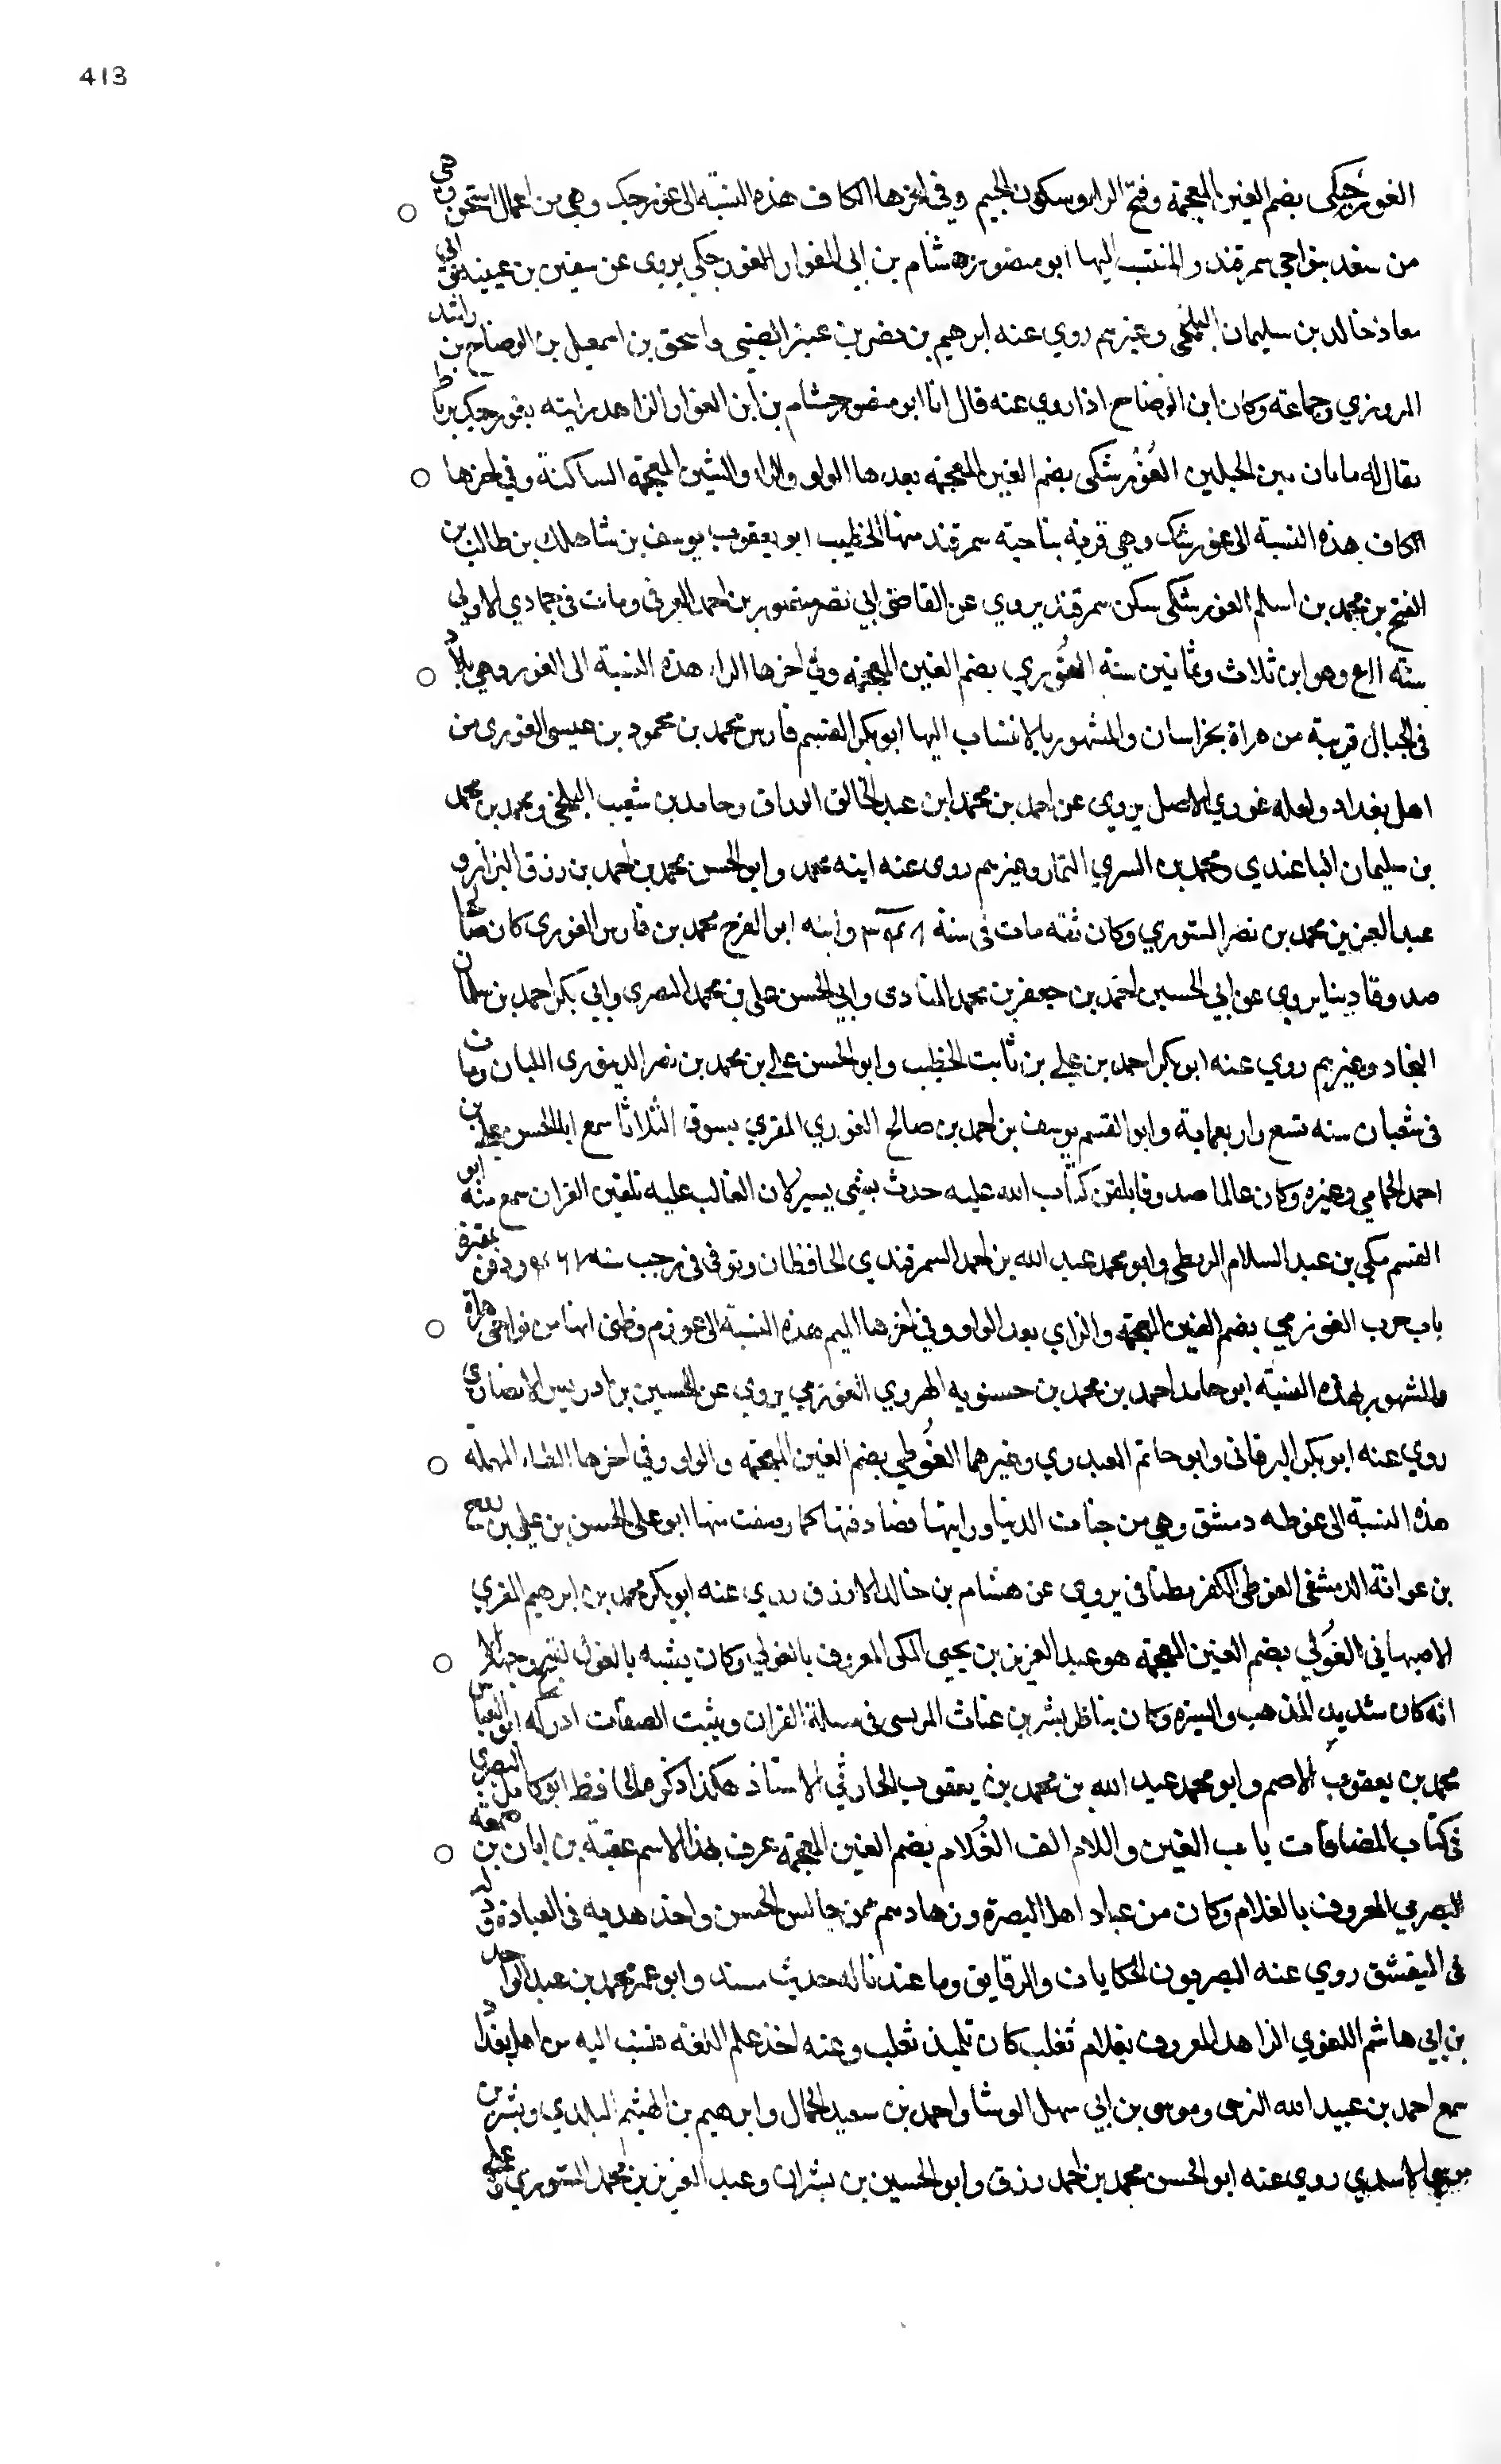 413
الغورجكى بضم الغين المعجمة وفتح الراء وسكون الجيم وفى اخرها الكاف هذه النسبة الى غورجك وهي من اعمال اشتيخن وهى
من سغد بنواحى سمرقند والمنتسب اليها ابو منصور هشام بن ابي المغوار الغورجكى يروى عن سفين بن عيينه وابي
معاذ خالد بن سليمان البلخى وغيرهم روي عنه ابرهيم بن نصر بن عنبر الضبى واسحق بن اسمعيل بن الوضاح بن راشد
المروزي وجماعة وكان ابن الوضاح اذا روى عنه قال انا ابو منصور هشام بن ابن الغوار الزاهد رايته بغورجك برباط
يقال له مايان بين الجبلين الغُوْرشكى بضم الغين المعجمه بعدها الواو والراء والشين المعجمة الساكنة وفى اخرها
الكاف هذه النسبة الى غورشك وهى قرية بناحية سمرقند منها الخطيب ابو يعقوب يوسف بن شاهلك بن طالب بن
الفتح بن محمد بن اسلم الغورشكى سكن سمرقند يروي عن القاضى ابي نصر منصور بن احمد الغزقى ومات فى جمادي الاولى
سنة ٤١١ وهو ابن ثلاث وثمانين سنة الغُوري بضم الغين المعجمه وفى اخرها الراء هذه النسبة الى الغور وهى بلاد
فى الجبال قريبة من هراة بخراسان والمشهور بالانتساب اليها ابو بكر القسم فارس محمد بن محمود بن عيسى الغورى من
اهل بغداد ولعله غوري الاصل يروى عن احمد بن محمد ابن عبد الخالق الوراق وحامد بن شعيب البلخى ومحمد بن محمد
بن سليمان الباغندي ومحمد بن السري التمار وغيرهم روى عنه ابنه محمد وابو الحسن محمد بن احمد بن رزق البزاز و
عبد العزيز بن محمد بن نصر الستوري وكان ثقه مات فى سنة ٣٤٨ وابنه ابو الفرج محمد بن فارس الغورى كان صالحا
صدوقا دينا يروى عن ابي الحسين احمد بن جعفر بن محمد المنادى وابي الحسن على بن محمد المصري وابي بكر احمد بن سلمان
النجاد وغيرهم روي عنه ابو بكر احمد بن علي بن ثابت الخطيب وابو الحسن على بن محمد بن نصر الدينورى اللبان ومات
فى شعبان سنه تسع واربعماية وابو القسم يوسف بن احمد بن صالح الغوري المقري بسوق الثلاثا سمع ابا الحسن على بن
احمد الحمامي وغيره وكان عالما صدوقا يلقن كتاب الله عليه حدث بشى يسير لان الغالب عليه تلقين القران سمع منه ابو
القسم مكي بن عبد السلام الرميلي وابو محمد عبد الله بن احمد السمرقندي الحافظان وتوفى فى رجب سنه ودفن بمقبرة
باب حرب الغوزمي بضم الغين المعجمه والزاي بعد الواو وفى اخرها الميم هذه النسبة الى غوزم وظنى انها من نواحى هراة
والمشهور بهذه النسبة ابو حامد احمد بن محمد بن حسنويه الهروي الغوزمي يروى عن الحسين بن ادريس الانصاري
روي عنه ابو بكر البرقانى وابو حاتم العبدوي وغيرهما الغُوطي بضم الغين المعجمه والواو وفى اخرها الطاء المهملة
هذه النسبة الى غوطه دمشق وهي من جنات الدنيا ورايتها فصادفتها كما وصفت منها ابو على الحسن بن على بن
بن عوانة الدمشقى الغوطى الكفربطنانى يروى عن هشام بن خالد الازرق روي عنه ابو بكر محمد بن ابرهيم المقري
الاصبهانى الغُولي بضم الغين المعجمه هو عبد العزيز بن يحيى المكى المعروف بالغولي وكان يشبه بالغول لقبح وجهه الا
انه كان شديد المذهب والسيرة وكان يناظر بشر بن غياث المريسى فى مسلة القران ويثبت الصفات ادركه ابو العباس
محمد بن يعقوب الاصم وابو محمد عبد الله بن محمد بن يعقوب الحارثي الاستاذ هكذا ذكره الحافظ ابو كامل البصري
فى كتاب المضافات باب الغين واللام الف الغُلام بضم الغين المعجمه عرف بهذا الاسم عقبة بن ابان بن صمعه
البصري المعروف بالغلام وكان من عباد اهل البصرة وزهادهم ممن جالس الحسن واخذ هديه فى العبادة ودله
فى التقشق روي عنه البصريون الحكايات والرقايق وما عندنا له حديث مسند وابو عمر محمد بن عبد الواحد
بن ابي هاشم اللغوي الزاهد المعروف بغلام ثعلب كان تلميذ ثعلب وعنه اخذ علم اللغه فنسب اليه من اهل بغداد
سمع احمد بن عبيد الله النرسى وموسى بن ابي سهل الوشا واحمد بن سعيد الجمال وابرهيم بن الهيثم البلدي وبشر بن
موسى الاسدي روي عنه ابو الحسن محمد بن احمد رزق وابو الحسين بن بشران وعبد العزيز بن محمد الستوري